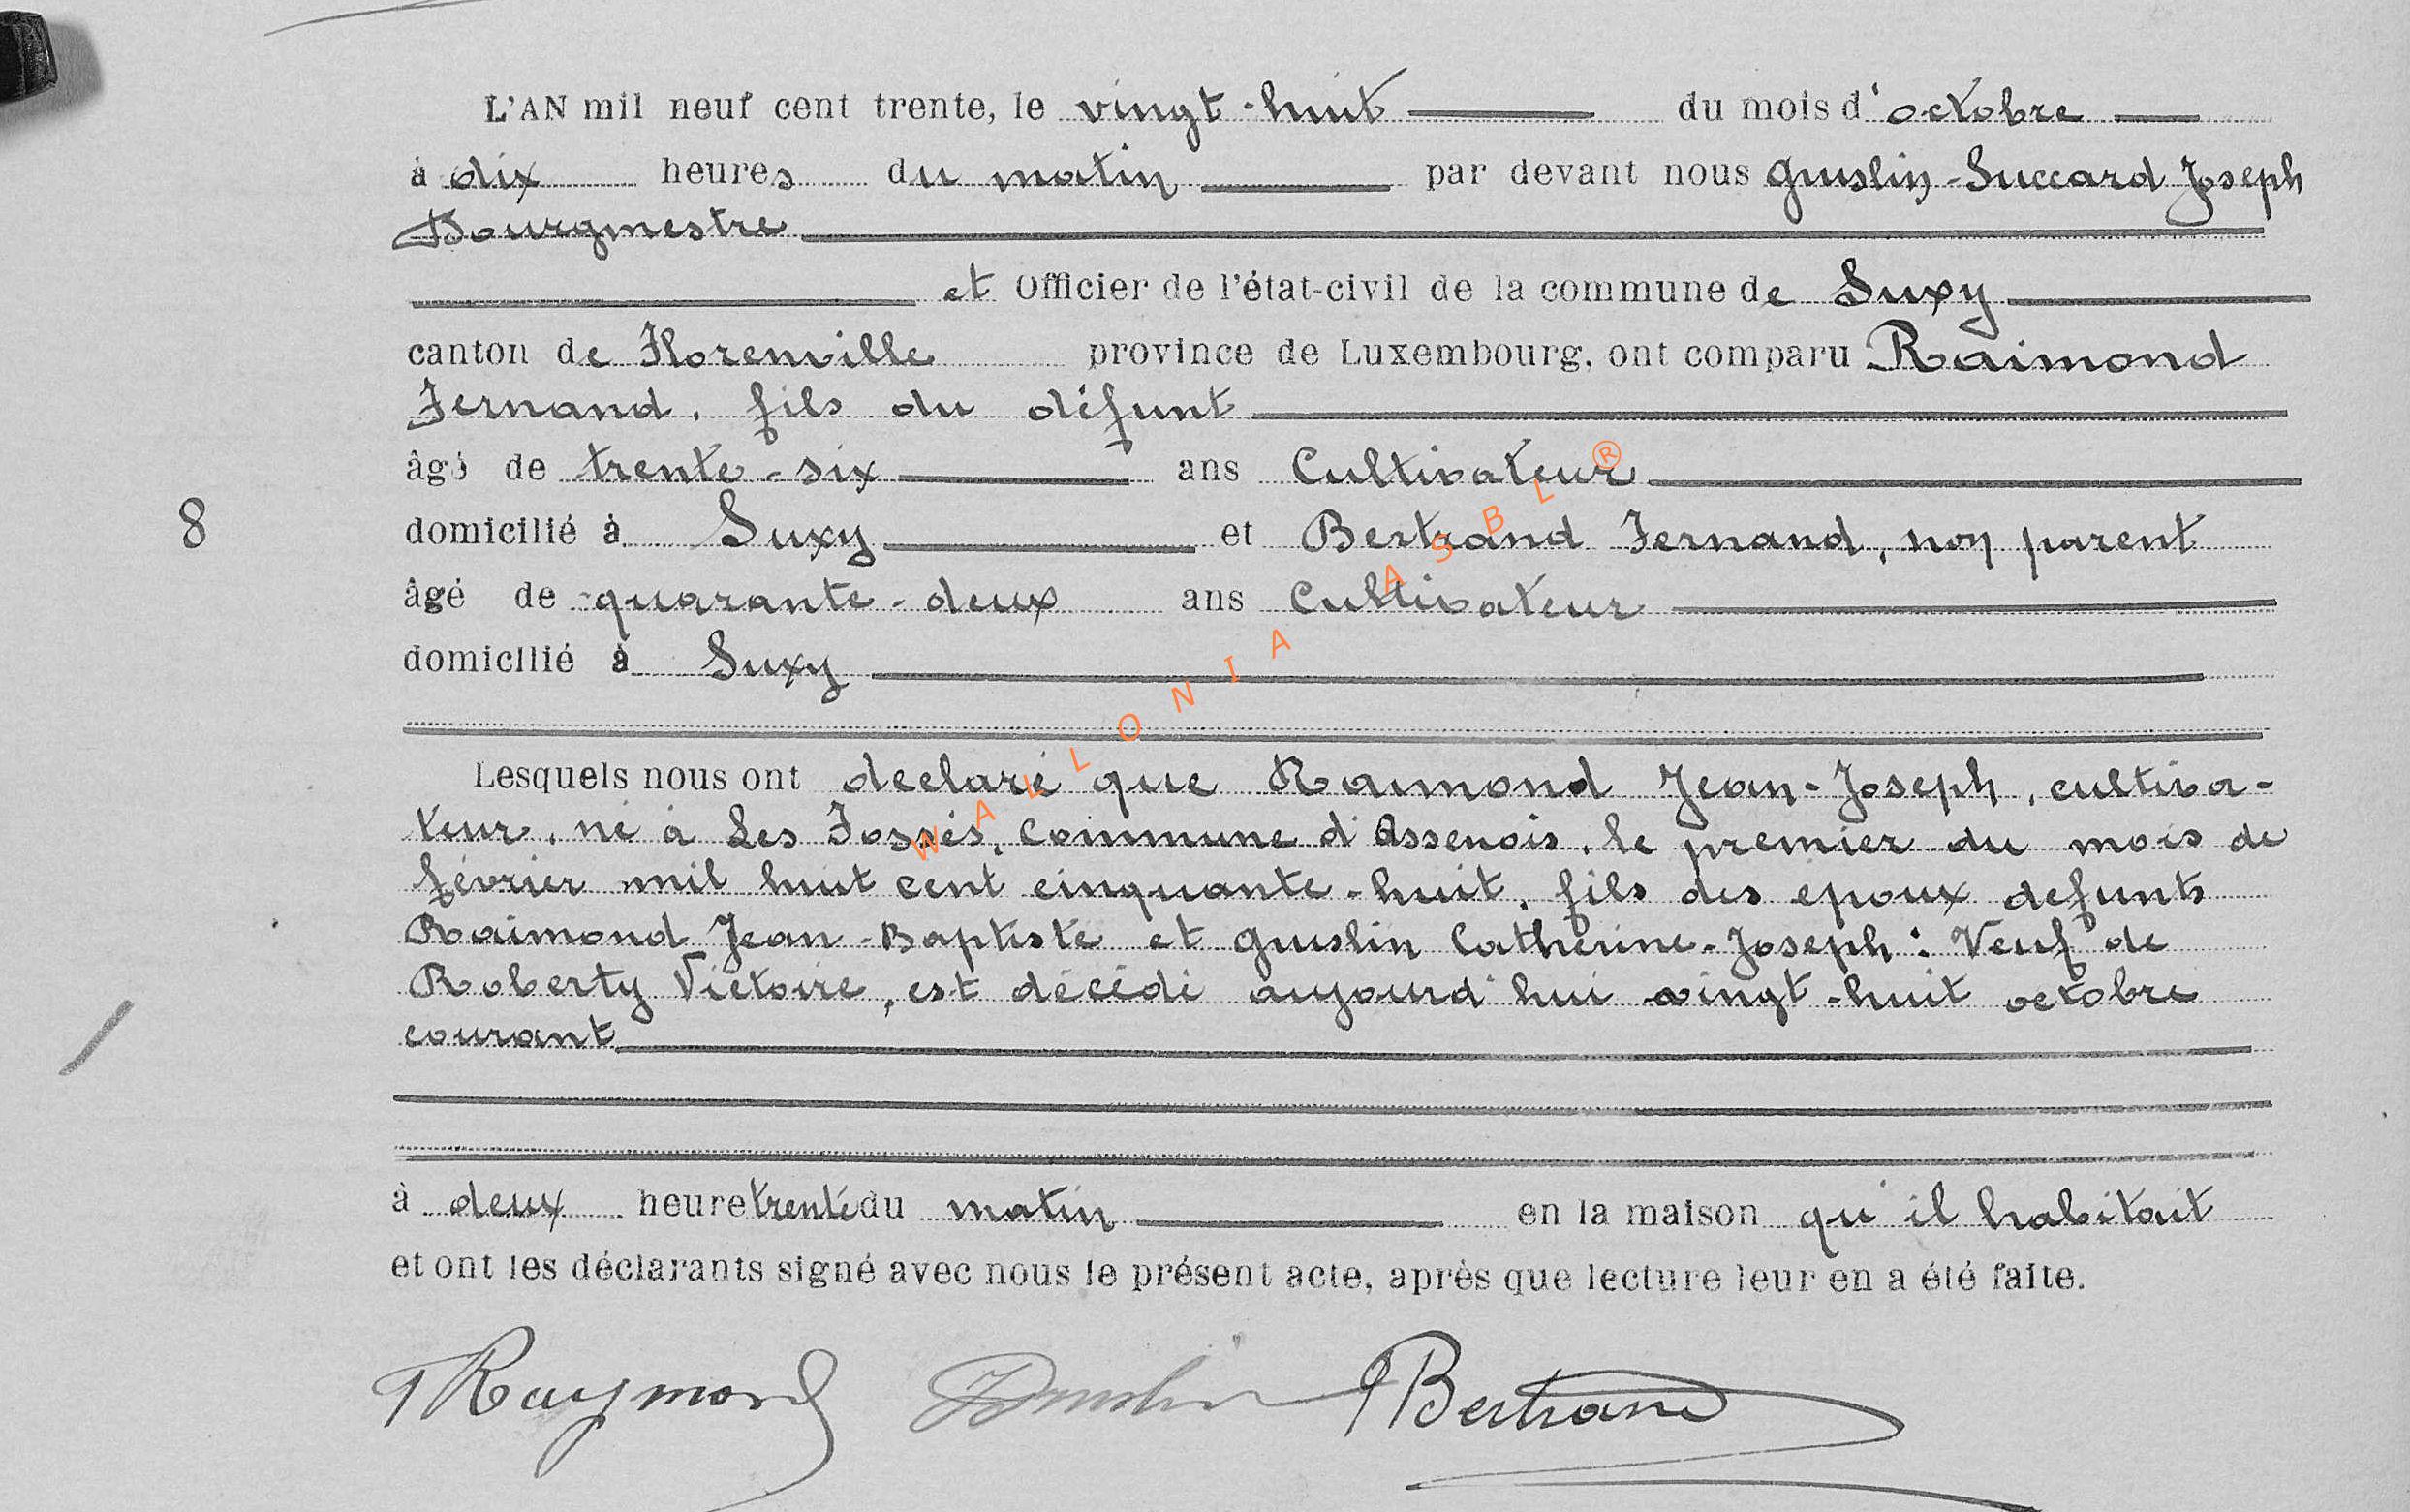 L'AN mil neuf cent trente, le vingt-huit du mois d'octobre
à dix heures du matin par devant nous Guislin-Succard Joseph
Bourgmestre
et Officier de l'état-civil de la commune de Suxy
canton de Florenville province de Luxembourg, ont comparu Raimond
Fernand, fils du défunt
âgé de trente-six ans Cultivateur
8 domicilié à Suxy et Bertrand Fernand, non parent
âgé de quarante-deux ans Cultivateur
domicilié à Suxy
Lesquels nous ont declaré que Raimond Jean-Joseph, cultiva-
teur, né à Les Fossés, Commune d'Assenois, le premier du mois de
février mil huit cent cinquante-huit, fils des epoux defunts
Raimond Jean-Baptiste et Guislin Catherine-Joseph : Veuf de
Roberty Victoire, est décédé aujourd'hui vingt-huit octobre
courant
à deux heure trente du matin en la maison qu'il habitait
et ont les déclarants signé avec nous le présent acte, après que lecture leur en a été faite.
Raymond Guislin Bertrand
WALLONIA ASBL ®